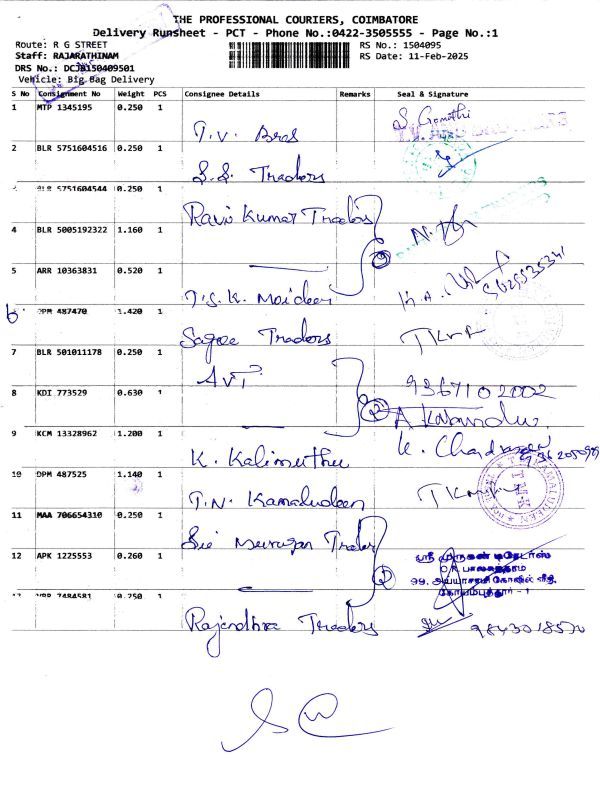 THE PROFESSIONAL COURIERS, COIMBATORE
Delivery Runsheet - PCT - Phone No.:0422-3505555 - Page No.:1
Route: R G STREET
RS No.: 1504095
Staff: RAJARATHINAM
RS Date: 11-Feb-2025
DRS No.: DCJB150409501
Vehicle: Big Bag Delivery
S No Consignment No Weight PCS Consignee Details Remarks Seal & Signature
1 MTP 1345195 0.250 1
T.V. Bros S. Gomathi
2 BLR 5751604516 0.250 1
S.S. Traders
BLR 5751604544 0.250 1
Ravi Kumar Traders
4 BLR 5005192322 1.160 1
5 ARR 10363831 0.520 1
T.S.K. Moideen
6 DPM 487470 1.420 1
Traders TKMK
7 BLR 501011178 0.250 1
AVT 9367102002
8 KDI 773529 0.630 1
2
9 KCM 13328962 1.200 1
K. Kalimuthu K. Chandrasen
10 DPM 487525 1.140 1
T.N. Kamaludeen
11 MAA 706654310 0.250 1
Sie Murugan Trader
12 APK 1225553 0.260 1
ஸ்ரீ முருகன் டிரேடர்ஸ்
O.K. பாலாஜிராம்
99, அய்யாசாமி கோவில் வீதி,
கோயமுத்தூர் - 1
7484581 0.250 1
Rajendhra Traders 9843018570